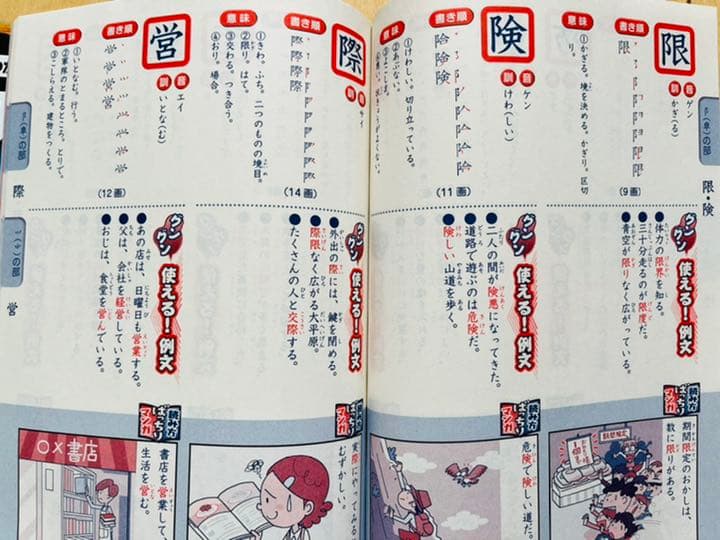 阝(阜)の部
限・険
限
音 ゲン
訓 かぎ(る)
書き順
(9画)
意味
①かぎる。境を決める。かぎり。区切り。
グングン使える!例文
●体力の限界を知る。
●三十分走るのが限度だ。
●青空が限りなく広がっている。
読み方ばっちりマンガ
期間限定のおかしは、
数に限りがある。
険
音 ケン
訓 けわ(しい)
書き順
(11画)
意味
①けわしい。切り立っている。
②あぶない。
③よこしま。
グングン使える!例文
●二人の間が険悪になってきた。
●道路で遊ぶのは危険だ。
●険しい山道を歩く。
読み方ばっちりマンガ
危険で険しい道だ。
際
音 サイ
訓
書き順
(14画)
意味
①きわ。ふち。二つのものの境目。
②限り。はて。
③交わる。つき合う。
④おり。場合。
グングン使える!例文
●外出の際には、鍵を閉める。
●際限なく広がる大平原。
●たくさんの人と交際する。
読み方ばっちりマンガ
実際にやってみる
むずかしい。
営
音 エイ
訓 いとな(む)
書き順
(12画)
意味
①いとなむ。行う。
②軍隊のとまるところ。とりで。
③こしらえる。建物をつくる。
グングン使える!例文
●あの店は、日曜日も営業する。
●父は、会社を経営している。
●おじは、食堂を営んでいる。
読み方ばっちりマンガ
書店を営業して、
生活を営む。
○×書店
阝(阜)の部
際
の部
営